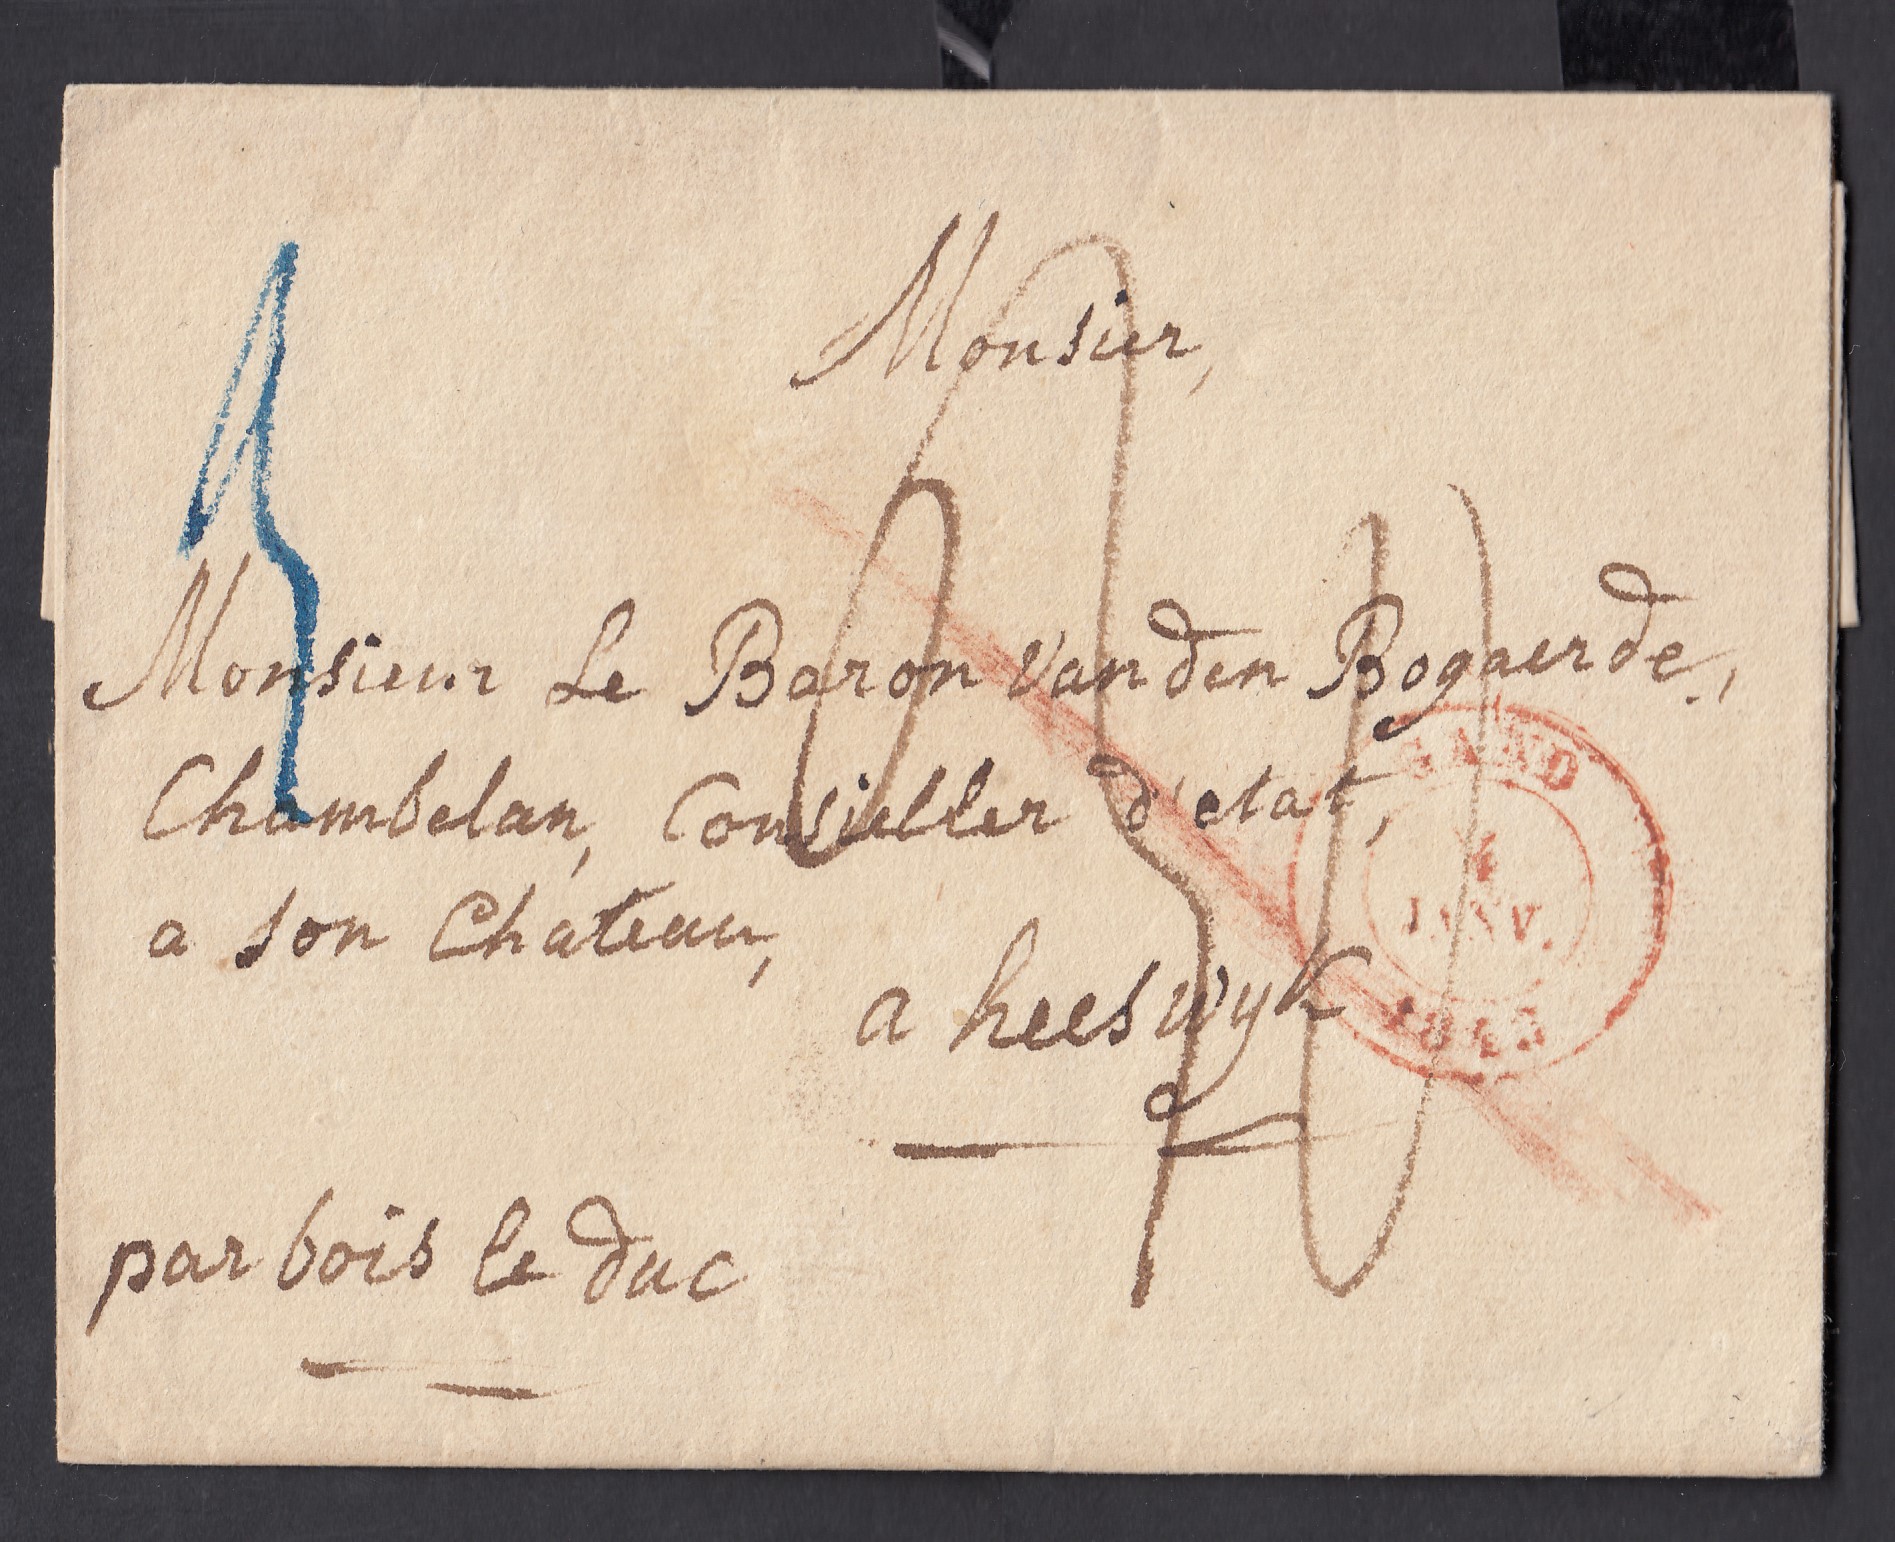 Monsier,
Monsieur Le Baron Van den Bogaerde,
Chambelan, Consieller d'etat,
a son Chateau,
a heeswyk
par bois le duc
GAND
4
JANV.
1843